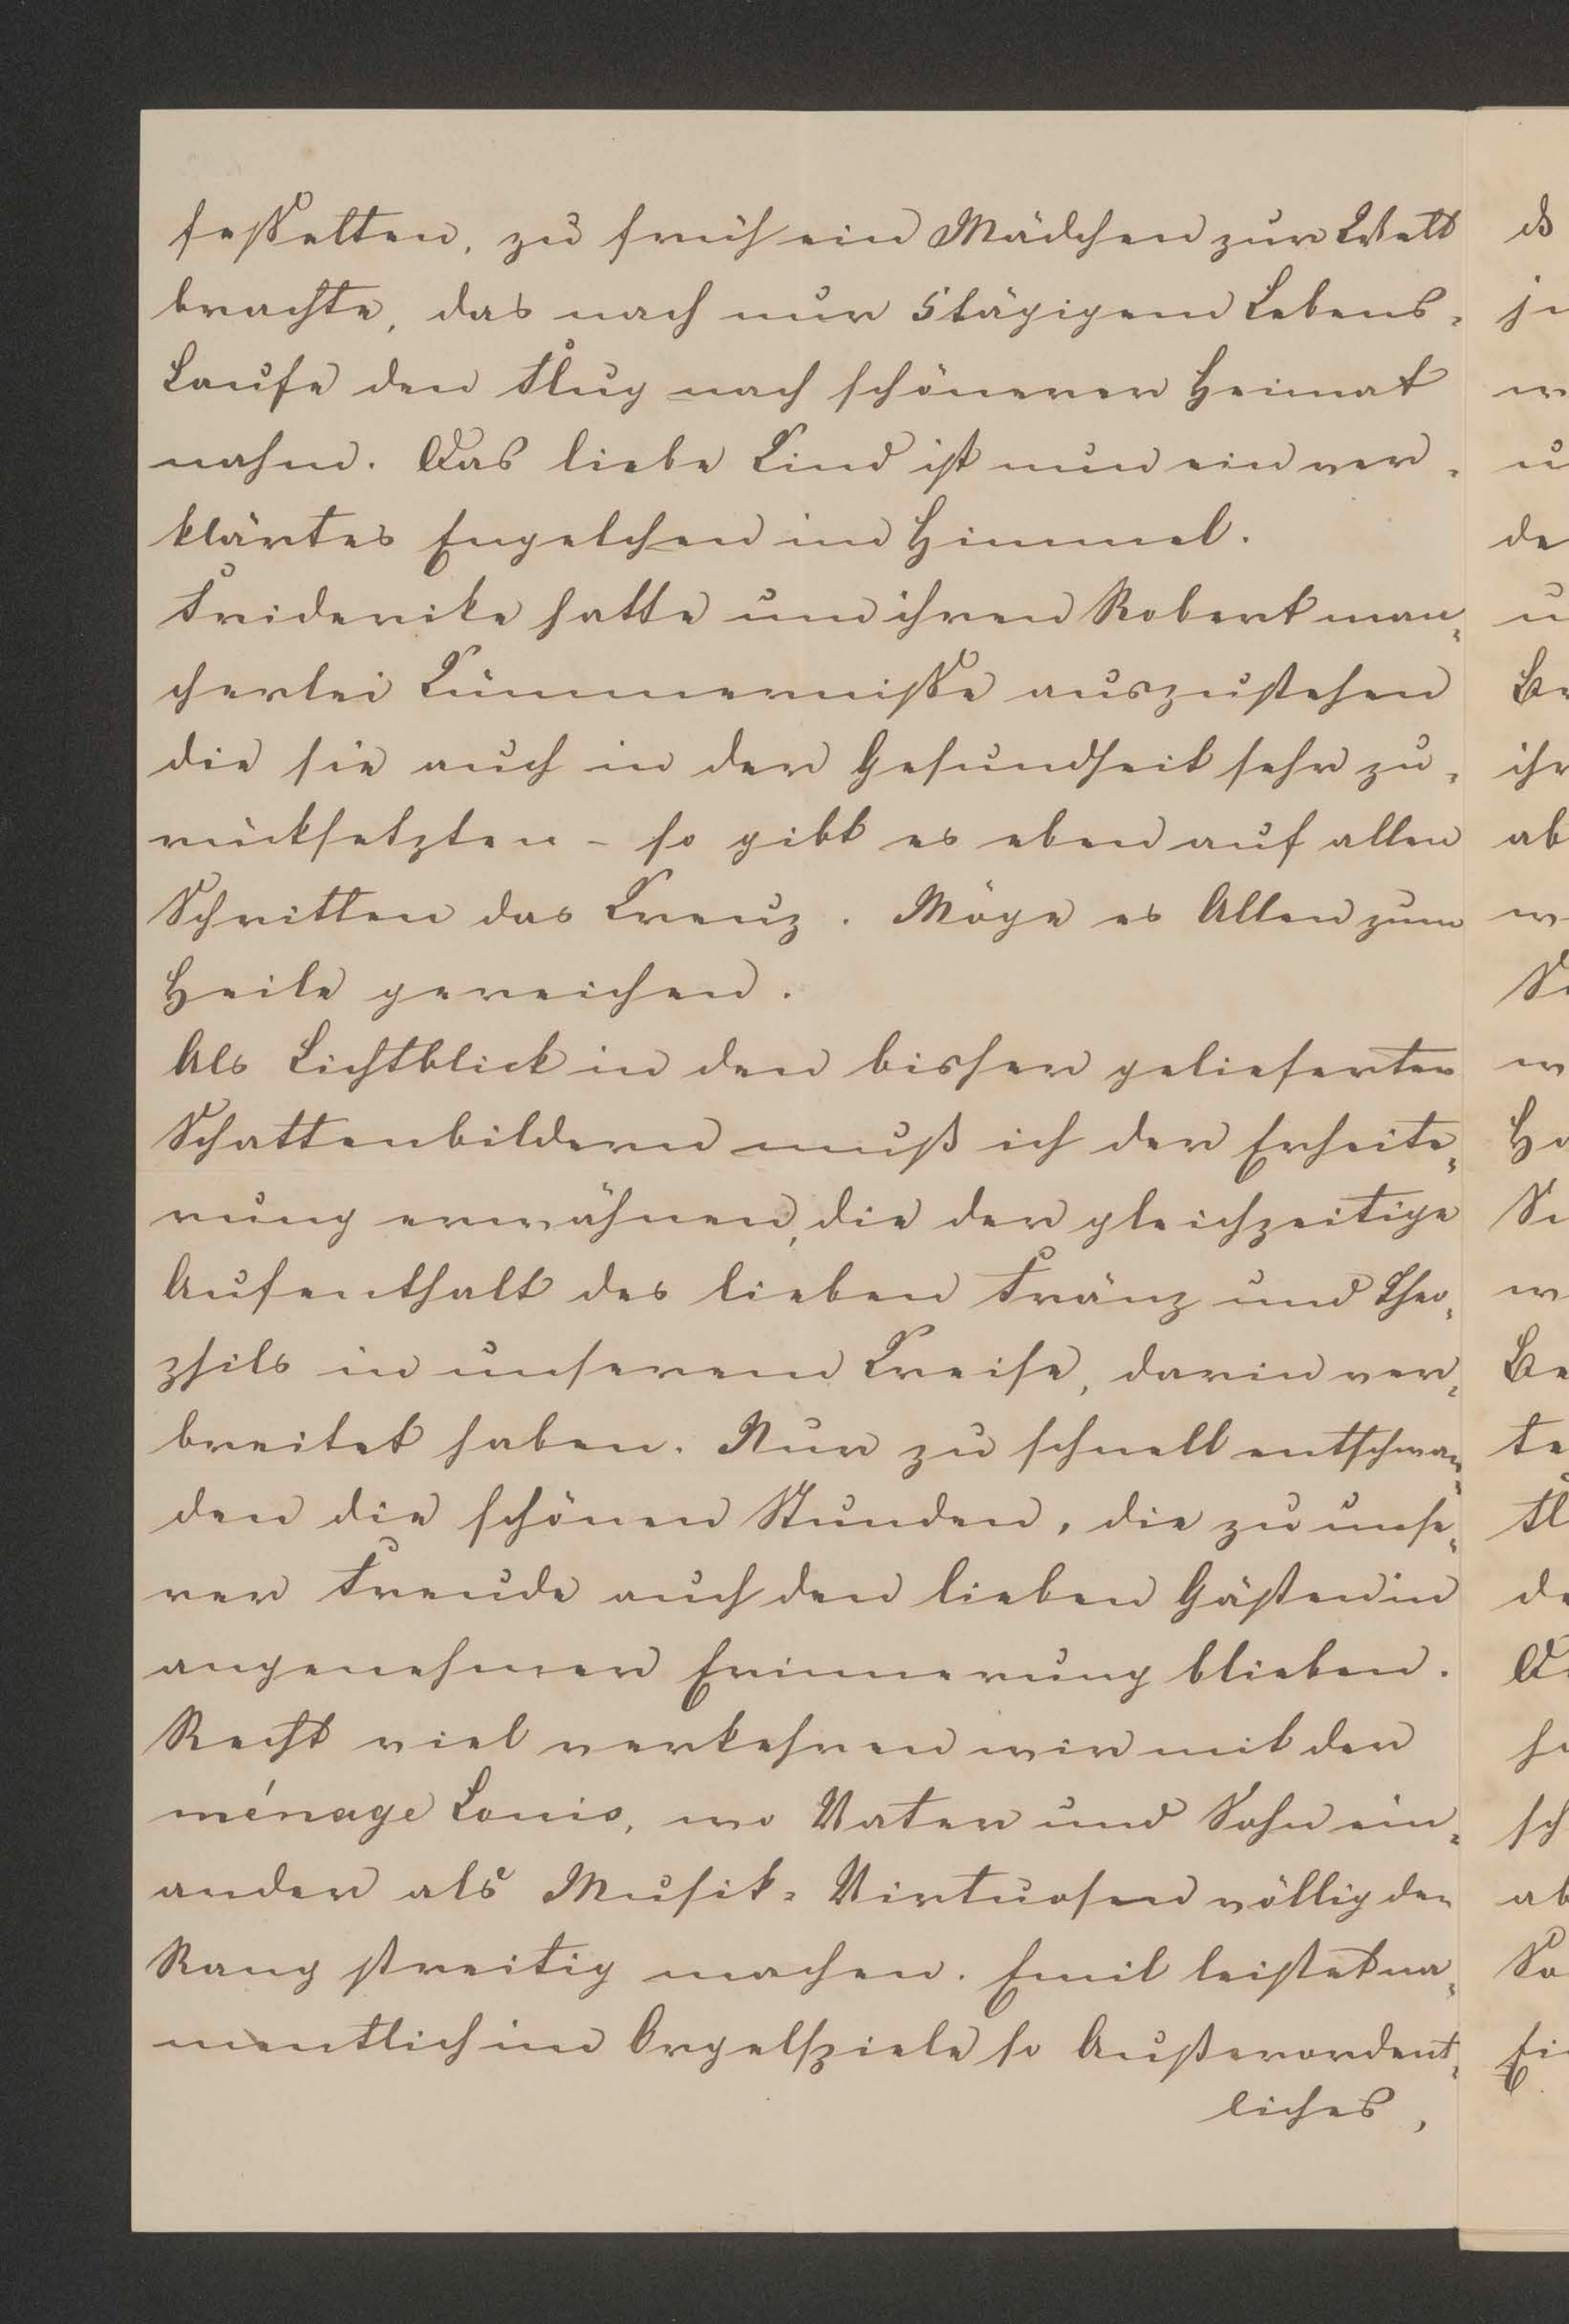 feßelten, zu früh ein Mädchen zur Welt
brachte, das nach nur 5tägigem Lebens-
Laufe den Flug nach schönerer Heimat
nahm. Das liebe Kind ist nun ein ver-
klärtes Engelchen im Himmel.
Friderike hatte um ihren Robert man-
cherlei Kümmerniße auszustehen
die sie auch in der Gesundheit sehr zu-
rücksetzten - so gibt es eben auf allen
Schritten das Kreuz. Möge es Allen zum
Heile gereichen.
Als Lichtblick in den bisher gelieferten
Schattenbildern muß ich der Erheite-
rung erwähnen, die der gleichzeitige
Aufenthalt des lieben Fränz und Theo-
phils in unserem Kreise, darin ver-
breitet haben. Nur zu schnell entschwan-
den die schönen Stunden, die zu unse-
rer Freude auch den lieben Gästen in
angenehmer Erinnerung blieben.
Recht viel verkehren wir mit der
ménage Louis, wo Vater und Sohn ein-
ander als Musik-Virtuosen völlig den
Rang streitig machen. Emil leistet na-
mentlich im Orgelspiele so Außerordent-
liches,